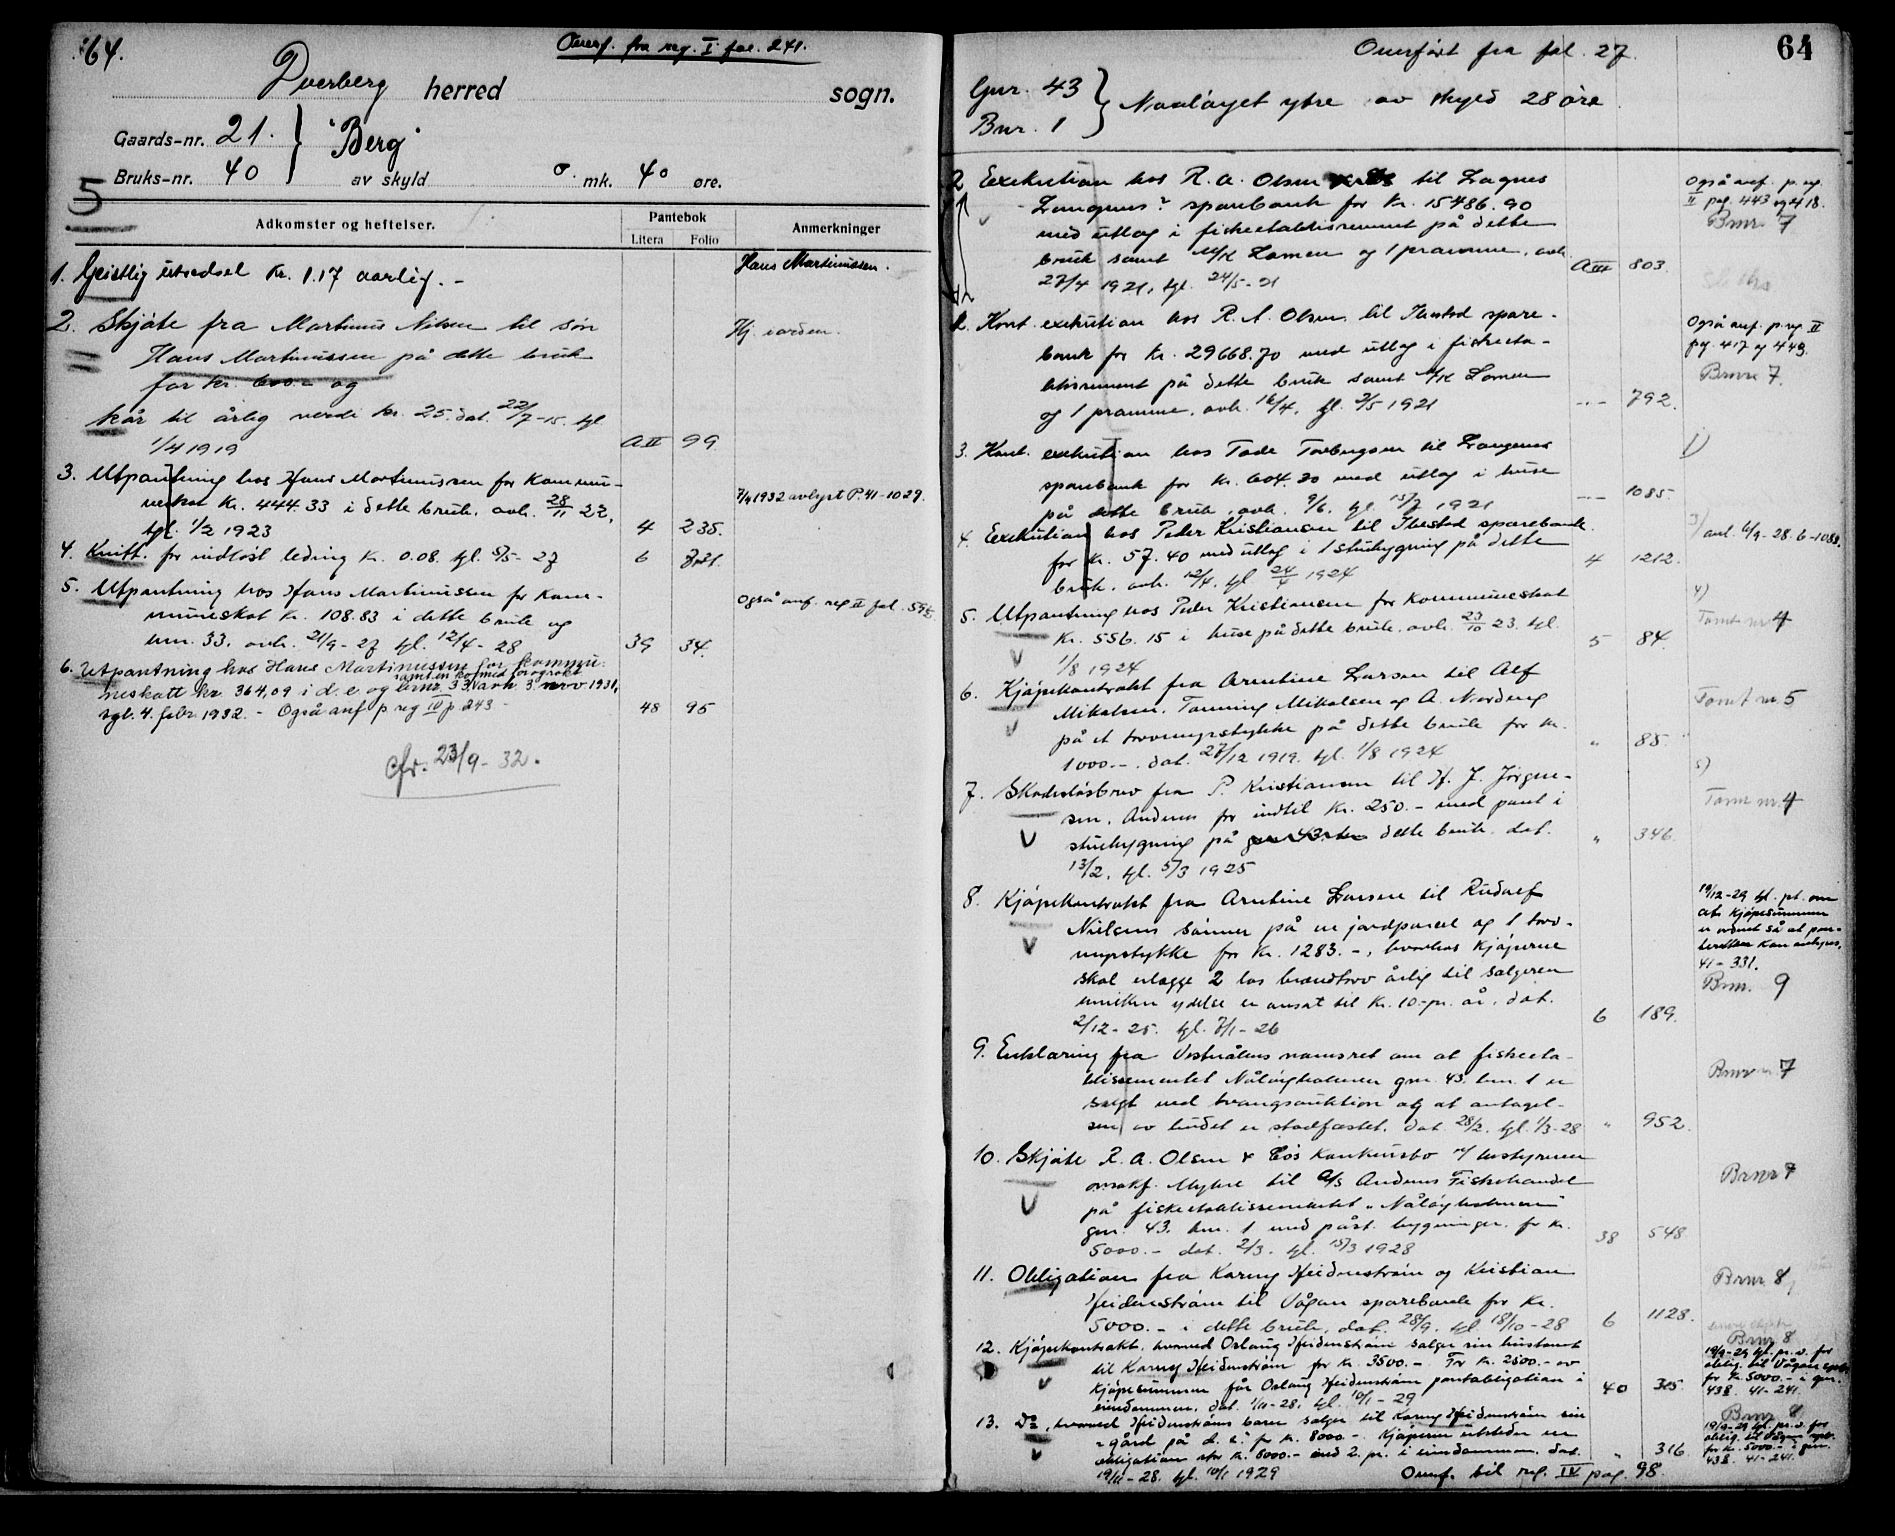 64.
Overf. fra reg. I fol. 241.
Dverberg herred sogn.
Gaards-nr. 21.
"Berg"
Bruks-nr. 40 av skyld 0 mk. 40 øre.
5
Adkomster og heftelser. Pantebok Anmerkninger
Litera Folio
1. Geistlig utredsel kr. 1.17 aarlig. - Hans Martinussen.
2. Skjøte fra Martinus Nilsen til søn Hj. iorden.
Hans Martinussen på dette bruk
for kr. 600.- og
kår til årlig verdi kr. 25. dat. 22/7-15. tgl
1/4 1919 A II 99
3. Utpantning hos Hans Martinussen for kommu-
neskat kr. 444.33 i dette bruk. avh. 28/11 22, 7/4 1932 avlyst P. 41-1029.
tgl. 1/2 1923 4 235.
4. Kvitt. for indløst leding kr. 0.08. tgl 5/5-27 6
5. Utpantning hos Hans Martinussen for kom-
muneskat kr. 108.83 i dette bruk og Også anf. reg II fol.
bnr. 33. avh. 21/9-27 tgl. 12/4-28 39 34.
6. Utpantning hos Hans Martinussen for kommu-
samt en ko med forøvrig
neskatt kr 364,09 i d. e og brnr. 33. avh 3. nov. 1931,
tgl. 4. febr. 1932. - Også anf p reg IV p. 243 - 48 95
Cfr. 23/9-32.
Overført fra fol. 27.
64
Gnr. 43
Bnr. 1
Naaløyet ytre av skyld 28 øre
Exekution hos R. A. Olsen til Langnes
Langenes? sparebank for kr. 15486.90
med utlæg i fisketablissement på dette
bruk samt M/K Lomen og 1 pramme. avh.
27/4 1921, tgl. 24/5-21 A III 803.
Også anf. p. reg.
II pag. 443 og 418.
Brnr 7
2. Kont. exekution hos R. A. Olsen til Ibestad spare-
bank for kr. 29668.70 med utlæg i fisketa-
blissement på dette bruk samt M/K Lomen
og 1 pramme. avh. 16/4. tgl. 2/5 1921 -.- 792.
Også anf. p. reg II
pag. 417 og 443.
Brnr 7.
3. Kont. exekution hos Tode Torbergsen til Langenes
sparebank for kr. 604.30 med utlæg i huse
på dette bruk. avh. 9/6. tgl. 15/7 1921 -.- 1085.
1)
4. Exekution hos Peder Kristiansen til Ibestad sparebank
for kr. 57.40 med utlæg i 1 stuebygning på dette
bruk. avh. 12/4. tgl 24/4 1924 4 1212.
3) avl. 6/9-28. 6-1088.
5. Utpantning hos Peder Kristiansen for kommuneskat
kr. 556.15 i huse på dette bruk. avh. 23/10 23. tgl.
1/8 1924 5 84.
4)
Tomt nr 4
6. Kjøpekontrakt fra Arntine Larsen til Alf
Mikalsen, Tonning Mikalsen og A. Nordeng
på et torvmyrstykke på dette bruk for kr.
1000.-. dat. 27/12 1919. tgl. 1/8 1924 " 85.
Tomt nr 5
7. Skadesløsbrev fra P. Kristiansen til H. J. Jørgen-
sen, Andenes for indtil kr. 250.- med pant i
stuebygning på dette bruk. dat.
13/2. tgl. 5/3 1925 " 346.
5)
Tomt nr. 4
8. Kjøpekontrakt fra Arntine Larsen til Rudolf
Nielsens sønner på en jordparcel og 1 torv-
myrstykke for kr. 1283.-, hvorhos kjøperne
skal erlægge 2 las brændtorv årlig til sælgeren
hvilken ydelse er ansat til kr. 10.- pr. år. dat.
2/12-25. tgl. 7/1-26 6 189.
19/12-29 tgl. pt. om
at kjøpesummen
er ordnet så at pan-
teretten kan avlyses.
41-331.
Brnr. 9
9. Erklæring fra Vesterålens namsret om at fisketa-
blissementet Nåløyholmen gnr. 43. bnr. 1 er
solgt ved tvangsauktion og at antagel-
sen av budet er stadfæstet. dat. 28/2. tgl. 1/3-28 " 952.
Brnr 7
10. Skjøte R. A. Olsen & Cos konkursbo v/ bestyreren
ovsakf. Myhre til A/S Andenes Fiskehandel
på fisketablissementet "Nåløyholmen"
gnr. 43. bnr. 1 med påst. bygninger. for kr.
5000.- dat. 2/3. tgl. 15/3 1928 38 548
Brnr 7
11. Obligation fra Karny Heidenstrøm og Kristian
Heidenstrøm til Vågan sparebank for kr.
5000.- i dette bruk. dat. 28/9. tgl 18/10-28 6 1128.
Brnr 8
12. Kjøpekontrakt, hvorved Oslaug Heidenstrøm sælger sin bustomt
til Karny Heidenstrøm for kr. 3500.- For kr. 2500.- av
kjøpesummen får Oslaug Heidenstrøm pantobligation i
eiendommen. dat. 1/11-28. tgl. 10/1-29 40 315.
Brnr 8
19/9-29 tgl. pr. v. for
oblig. til Vågan spb.
for kr. 5000.- i gnr.
43/8. 41-241.
13. Do, hvorved Heidenstrøms barn sælger til Karny Heidenstrøm sin
gård på d. e. for kr. 8000.- Kjøperen utsteder en
obligation stor kr. 8000.- med 2. pr. i eiendommen. dat.
19/11-28. tgl. 10/1 1929 " 316
Brnr 8
19/9-29 tgl. pr. v. for
oblig. til Vågan spb.
for kr. 5000.- i gnr.
43/8. 41-241.
Overf. til reg. IV pag. 98.